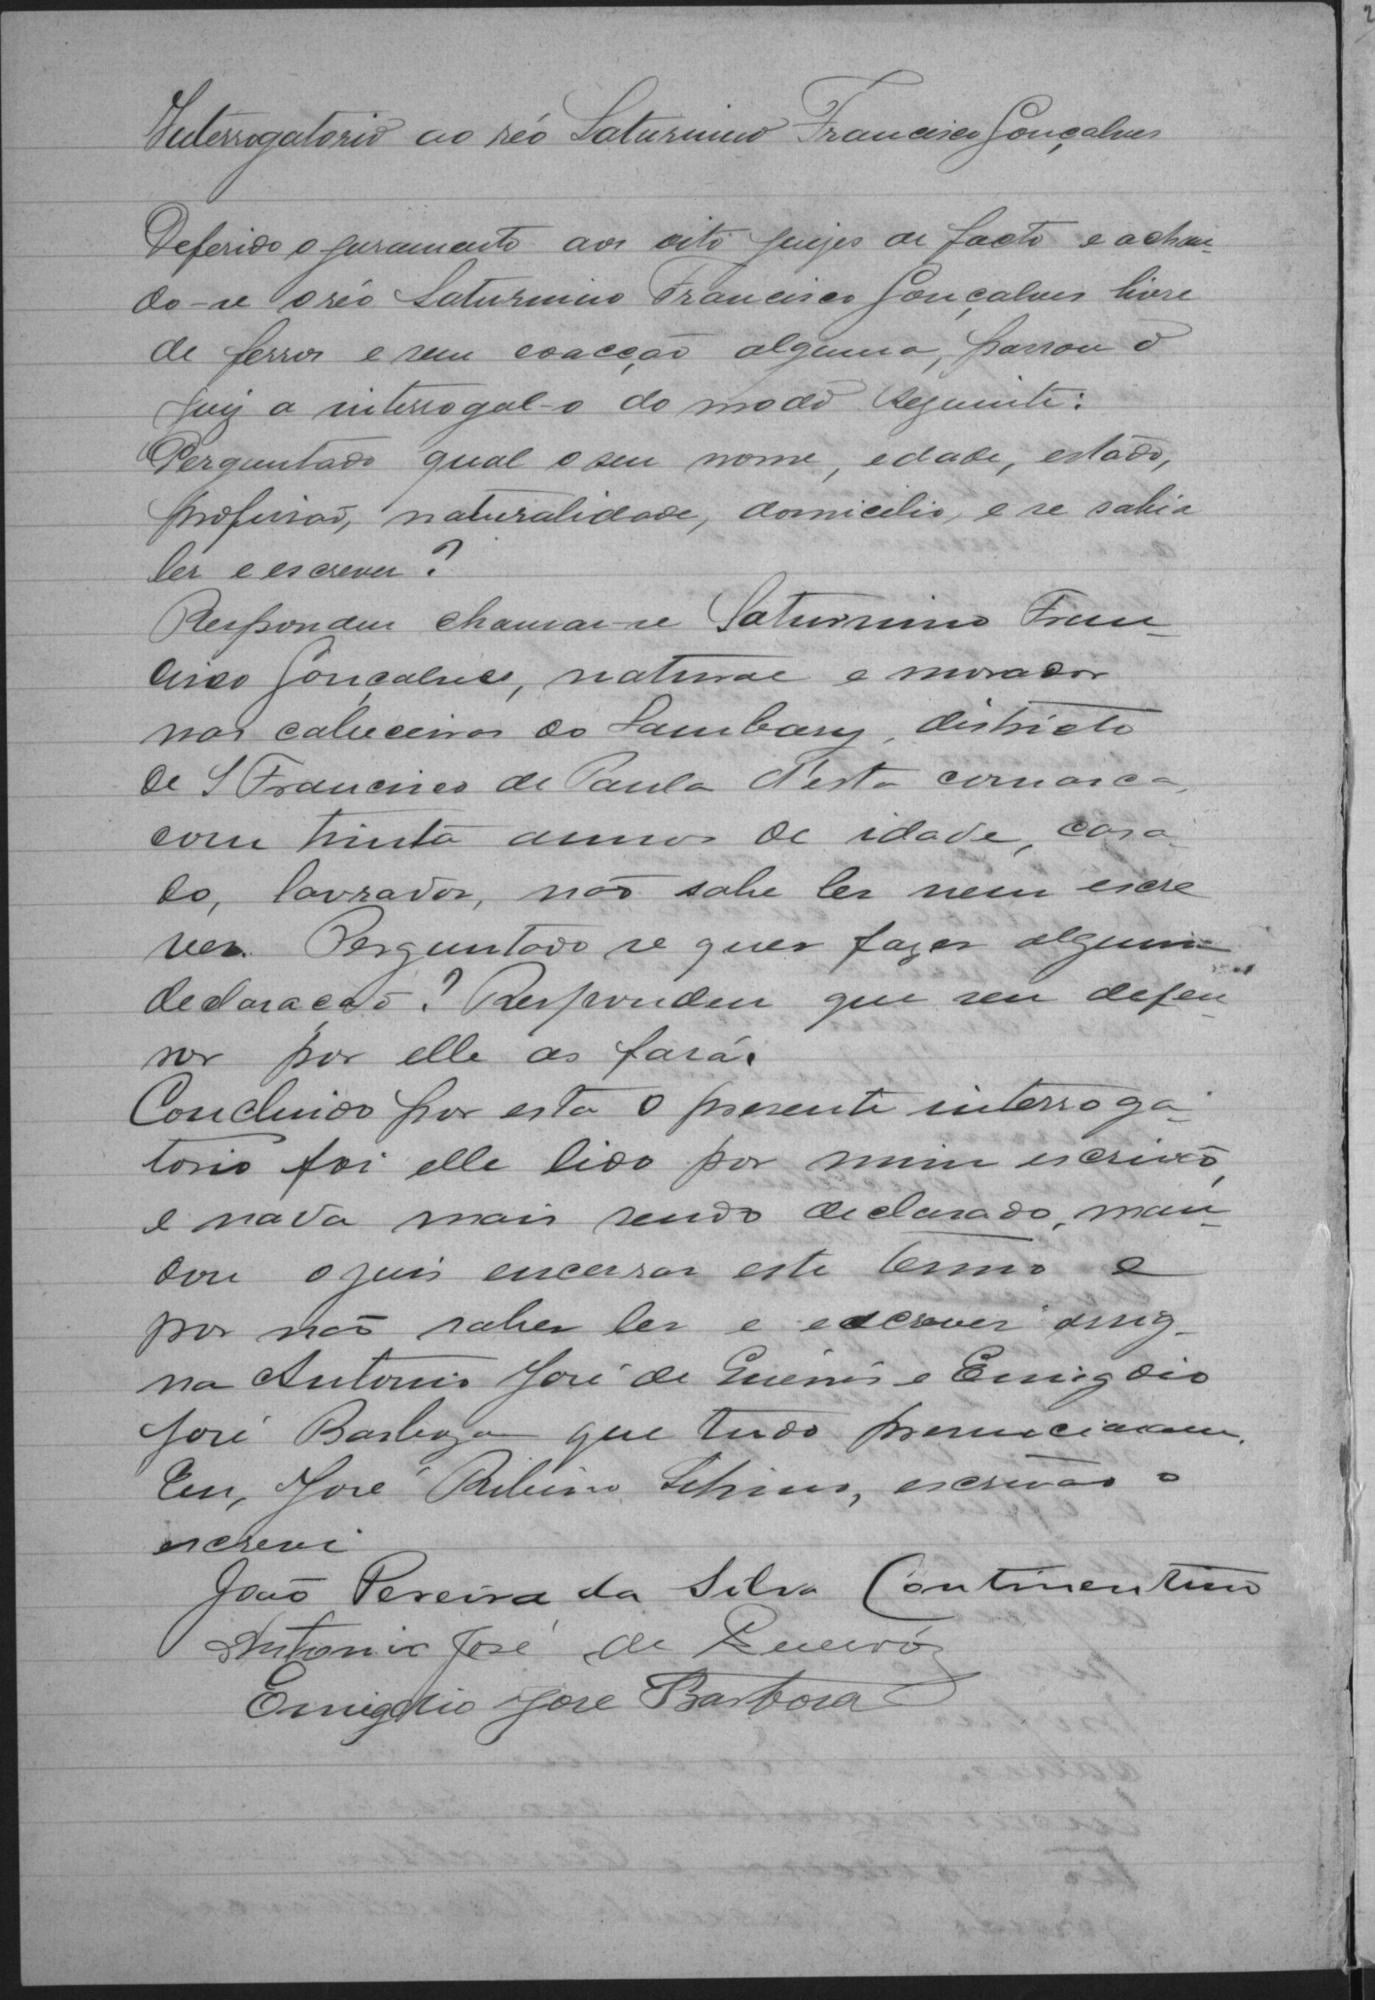 Interrogatorio ao réo Saturnino Francisco Gonçalves
Deferido o juramento aos oito juizes de facto e achan-
do-se o réo Saturnino Francisco Gonçalves livre
de ferros e sem coacção alguma, passou o
juiz a interrogal-o do modo seguinte:
Perguntado qual o seu nome, edade, estado,
profissaõ, naturalidade, domicilio, e se sabia
ler e escrever?
Respondeu chamar-se Saturnino Fran-
cisco Gonçalves, natural e morador
nas cabeceiras do Lambary, districto
de S Francisco de Paula d'esta comarca,
com trinta annos de idade, casa-
do, lavrador, naõ sabe ler nem escre
ver. Perguntado se quer fazer alguma
declaraçaõ? Respondeu que seu defen-
sor por elle as fará.
Concluido por esta o presente interroga-
torio foi elle lido por mim escrivaõ,
e nada mais sendo declarado, man-
dou o juis encerrar este termo e
por naõ saber ler e escrever assig-
na Antonio José de e Emigdio
José Barboza que tudo presenciaram.
Eu, José Ribeiro, escrivaõ o
escrevi
Joaõ Pereira da Silva Continentino
Antonio José de
Emigdio Jose Barbosa